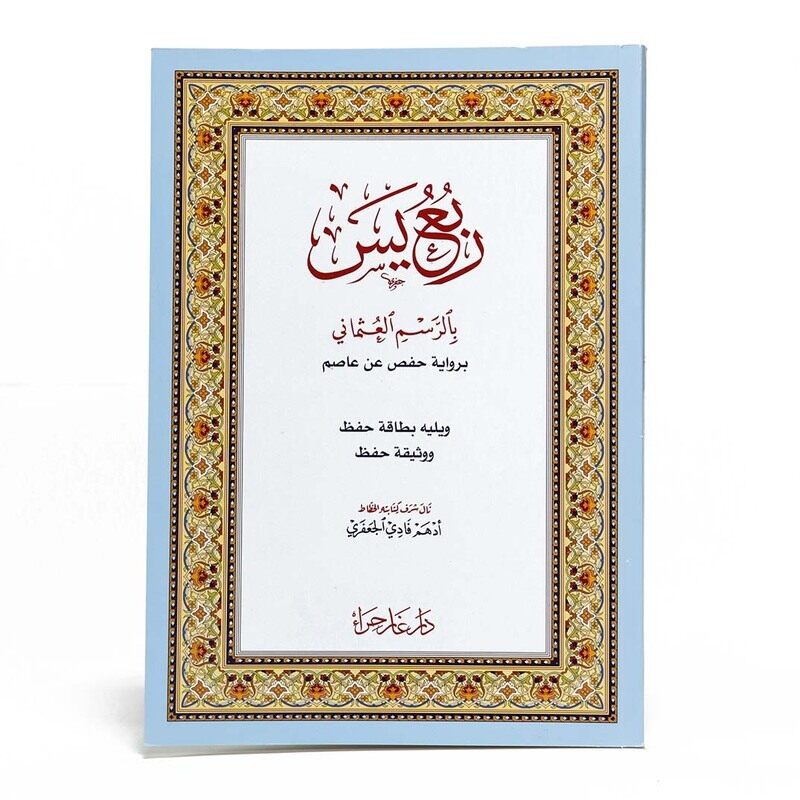 رُبُعُ يس
بِٱلرَّسْمِ ٱلعُثمَاني
برواية حفص عن عاصم
ويليه بطاقة حفظ
ووثيقة حفظ
نَالَ شَرَفَ كِتَابَتِهِ الخَطَّاط
أدْهَمْ فَادِي ٱلجَعفَرِي
دَار غَار حِرَاء